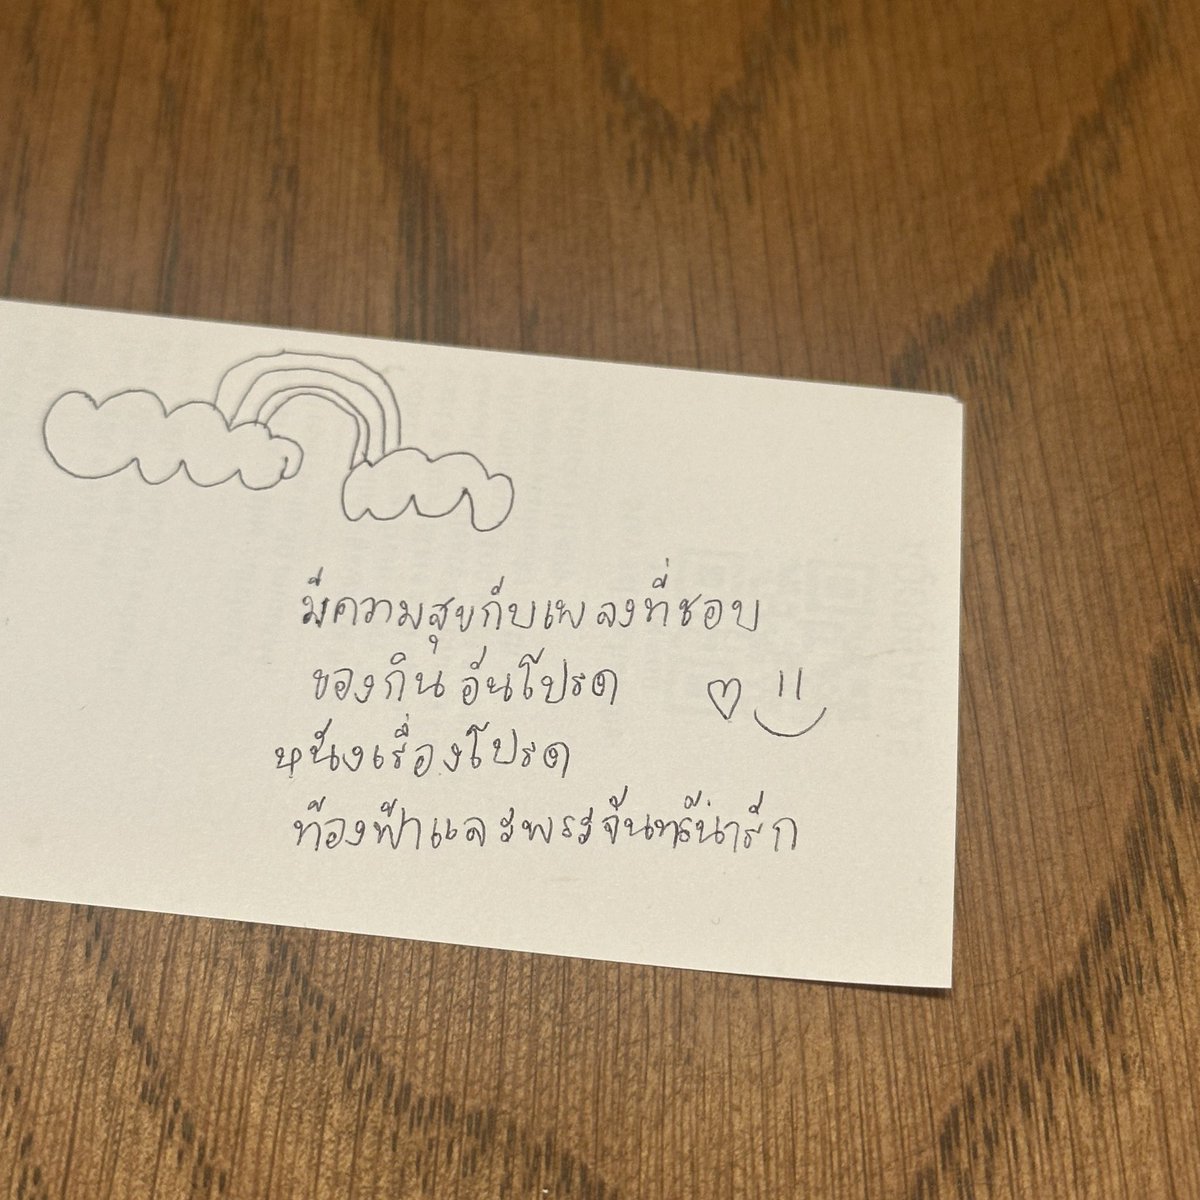 มีความสุขกับเพลงที่ชอบ
ของกิน อันโปรด
หนังเรื่องโปรด
ท้องฟ้าและพระจันทร์น่ารัก